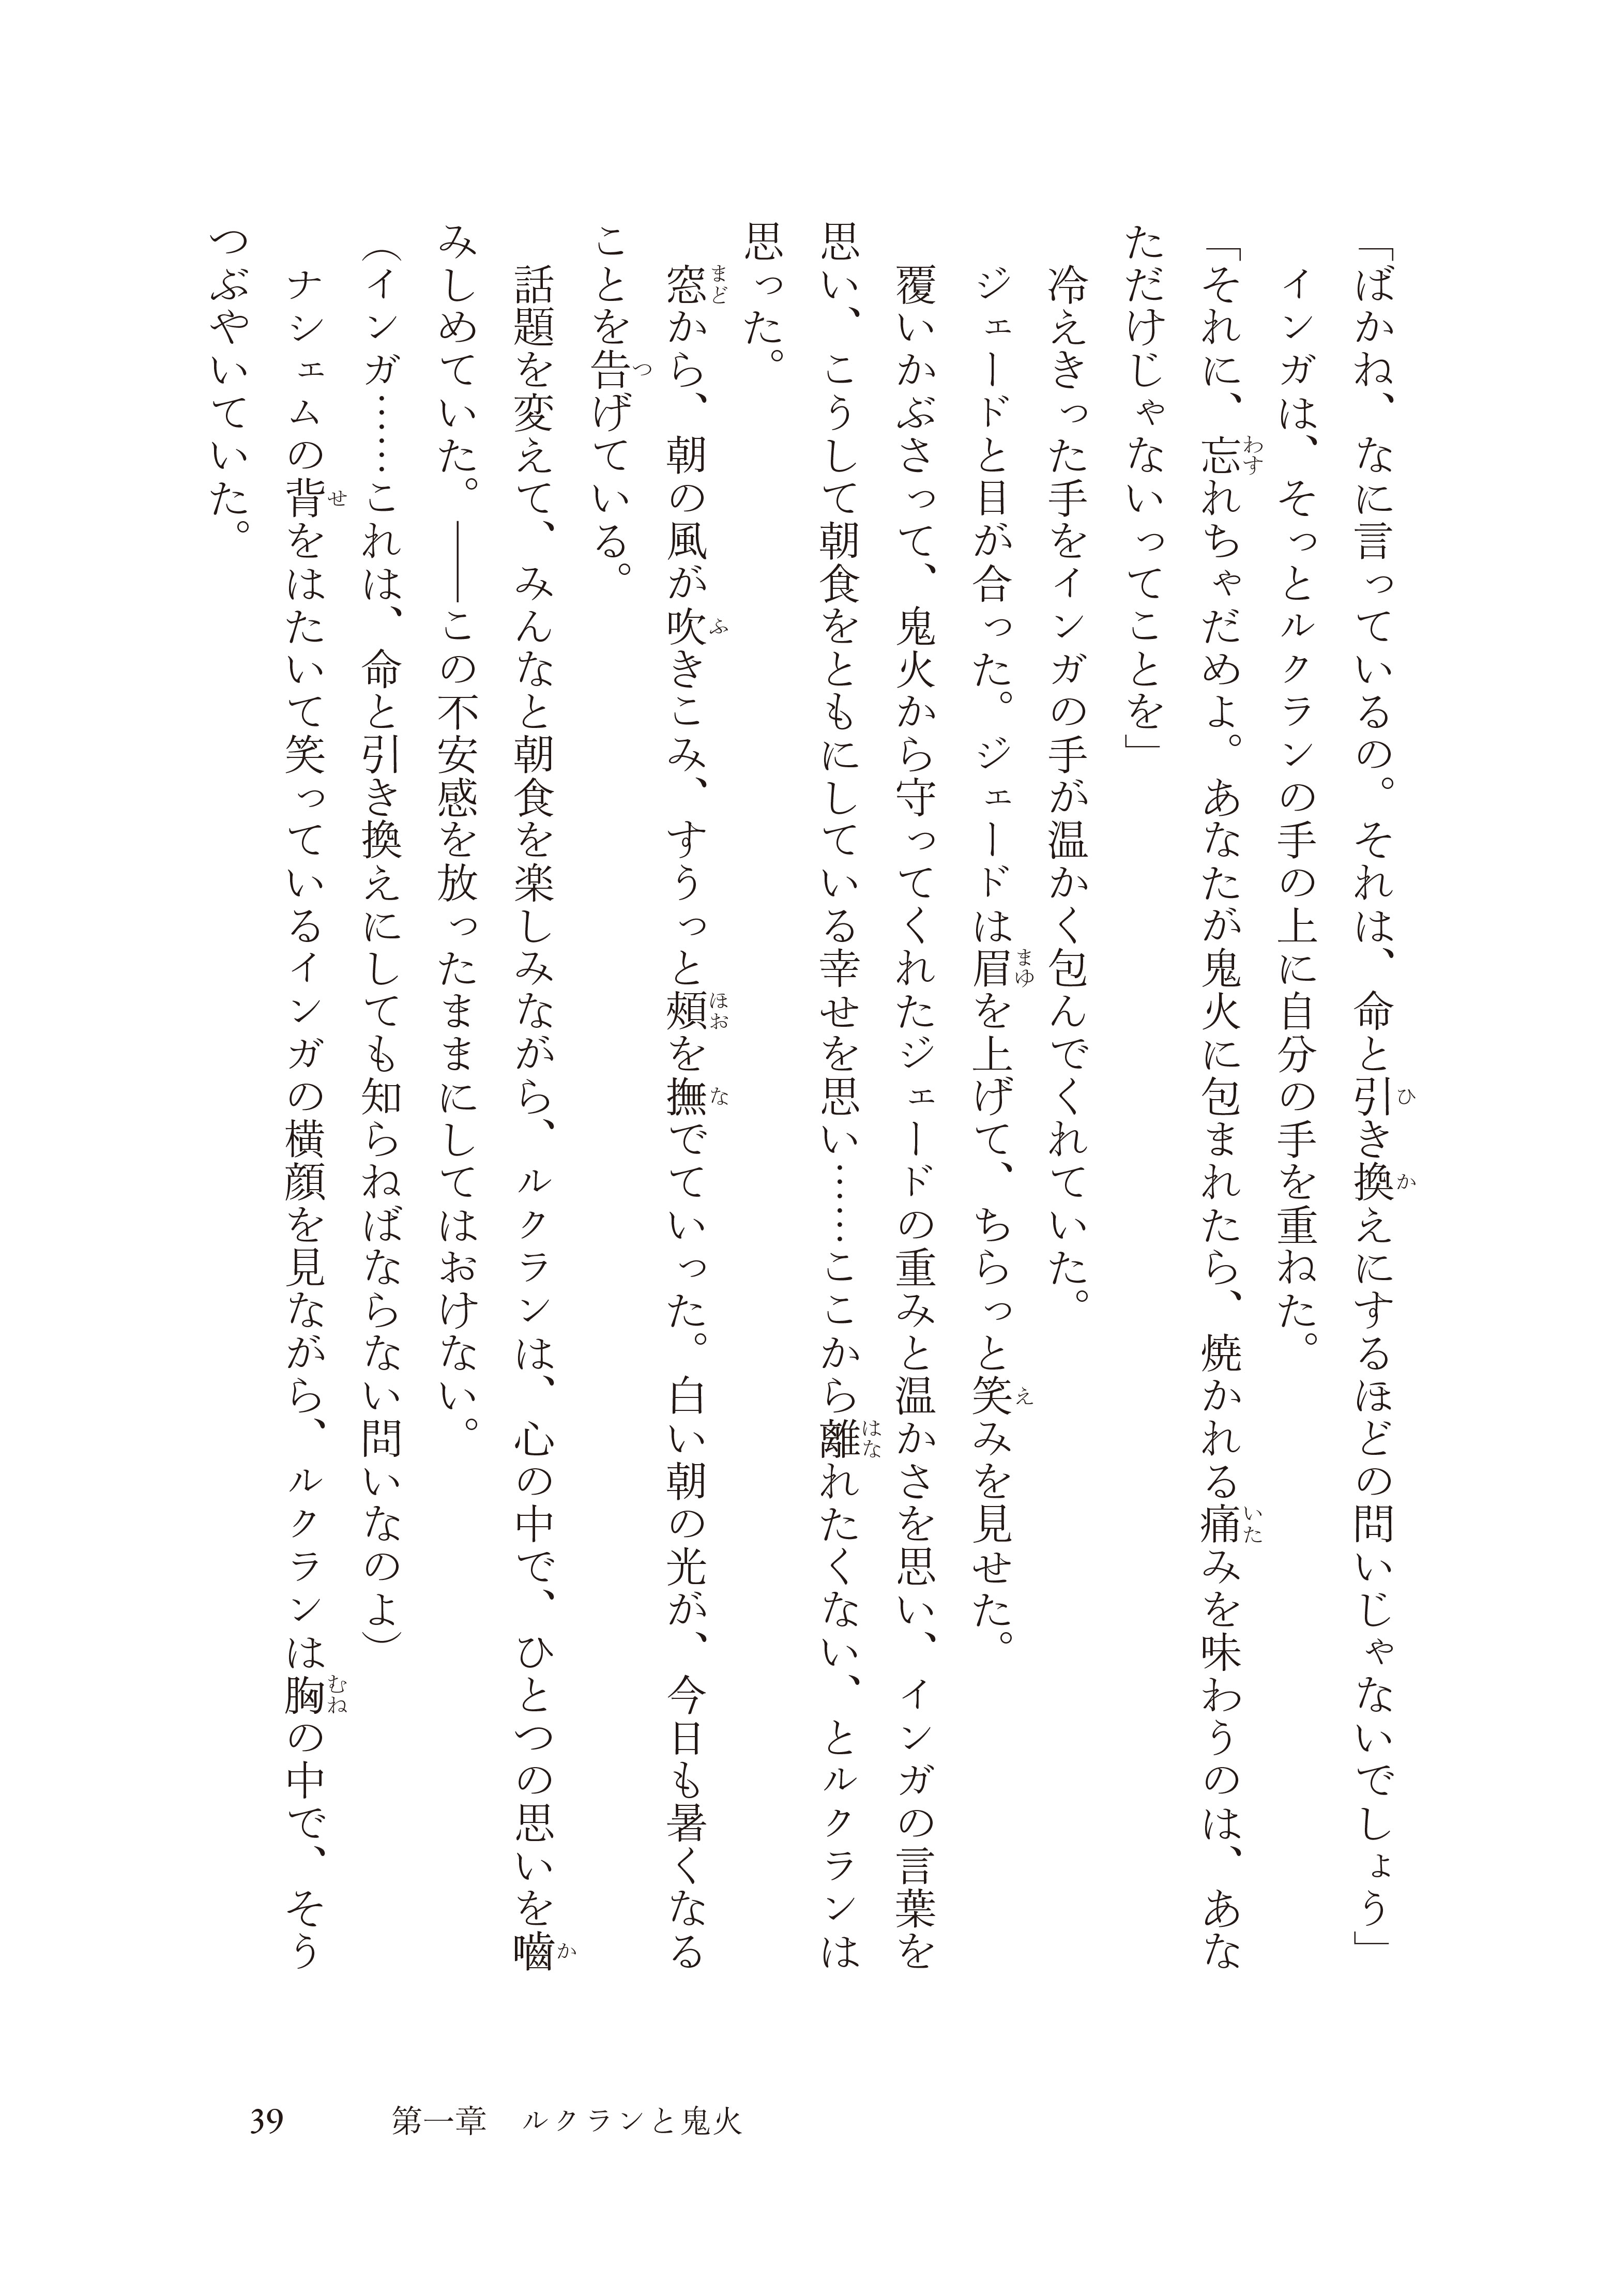 「ばかね、なに言っているの。それは、命と引き換えにするほどの問いじゃないでしょう」
インガは、そっとルクランの手の上に自分の手を重ねた。
「それに、忘れちゃだめよ。あなたが鬼火に包まれたら、焼かれる痛みを味わうのは、あな
ただけじゃないってことを」
冷えきった手をインガの手が温かく包んでくれていた。
ジェードと目が合った。ジェードは眉を上げて、ちらっと笑みを見せた。
覆いかぶさって、鬼火から守ってくれたジェードの重みと温かさを思い、インガの言葉を
思い、こうして朝食をともにしている幸せを思い……ここから離れたくない、とルクランは
思った。
窓から、朝の風が吹きこみ、すうっと頰を撫でていった。白い朝の光が、今日も暑くなる
ことを告げている。
話題を変えて、みんなと朝食を楽しみながら、ルクランは、心の中で、ひとつの思いを嚙
みしめていた。――この不安感を放ったままにしてはおけない。
(インガ……これは、命と引き換えにしても知らねばならない問いなのよ)
ナシェムの背をはたいて笑っているインガの横顔を見ながら、ルクランは胸の中で、そう
つぶやいていた。
39 第一章 ルクランと鬼火